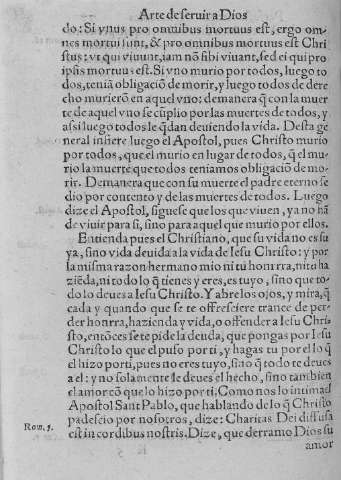 Arte de seruir a Dios
do: Si vnus pro omnibus mortuus est, ergo om-
nes mortui sunt, & pro omnibus mortuus est Chri
stus: vt qui viuunt, iam nõ sibi viuant, sed ei qui pro
ipsis mortuus est. Si vno murio por todos, luego to
dos, teniã obligaciõ de morir, y luego todos de dere
cho murierõ en aquel vno: demanera q̃ con la muer
te de aquel vno se cũplio por las muertes de todos, y
assi luego todos le q̃dan deuiendo la vida. Desta ge
neral infiere luego el Apostol, pues Christo murio
por todos, que el murio en lugar de todos, q̃ el mu-
rio la muerte que todos teniamos obligaciõ de mo-
rir. Demanera que con su muerte el padre eterno se
dio por contento y de las muertes de todos. Luego
dize el Apostol, siguese que los que viuen, ya no hã
de viuir para si, sino para aquel que murio por ellos.
Entienda pues el Christiano, que su vida no es su
ya, sino vida deuida a la vida de Iesu Christo: y por
la misma razon hermano mio ni tu honrra, ni tu ha
ziẽda, ni todo lo q̃ tienes y eres, es tuyo, sino que to-
do lo deues a Iesu Christo. Y abre los ojos, y mira, q̃
cada y quando que se te offresciere trance de per-
der honrra, hazienda y vida, o offender a Iesu Chri
sto, entõces se te pide la deuda, que pongas por Iesu
Christo lo que el puso por ti, y hagas tu por el lo q̃
el hizo por ti, pues no eres tuyo, sino q̃ todo te deues
a el: y no solamente le deues el hecho, sino tambien
el amor cõ que lo hizo por ti. Como nos lo intima el
Apostol Sant Pablo, que hablando de lo q̃ Christo
padescio por nosotros, dize: Charitas Dei diffusa
Rom. 5.
est in cordibus nostris. Dize, que derramo Dios su
amor